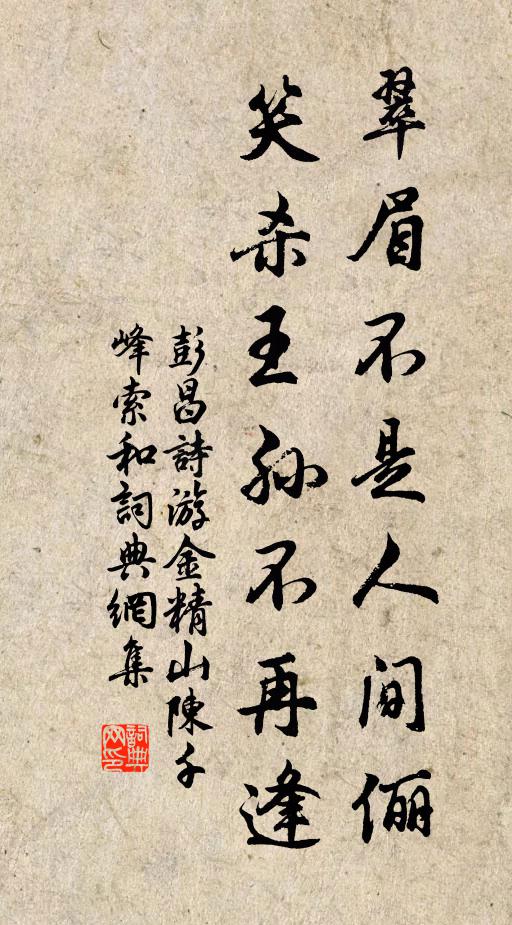 翠眉不是人間儷
笑杀王孫不再逢
彭昌詩游金精山陳千
峰索和詞典網集
詞典网印